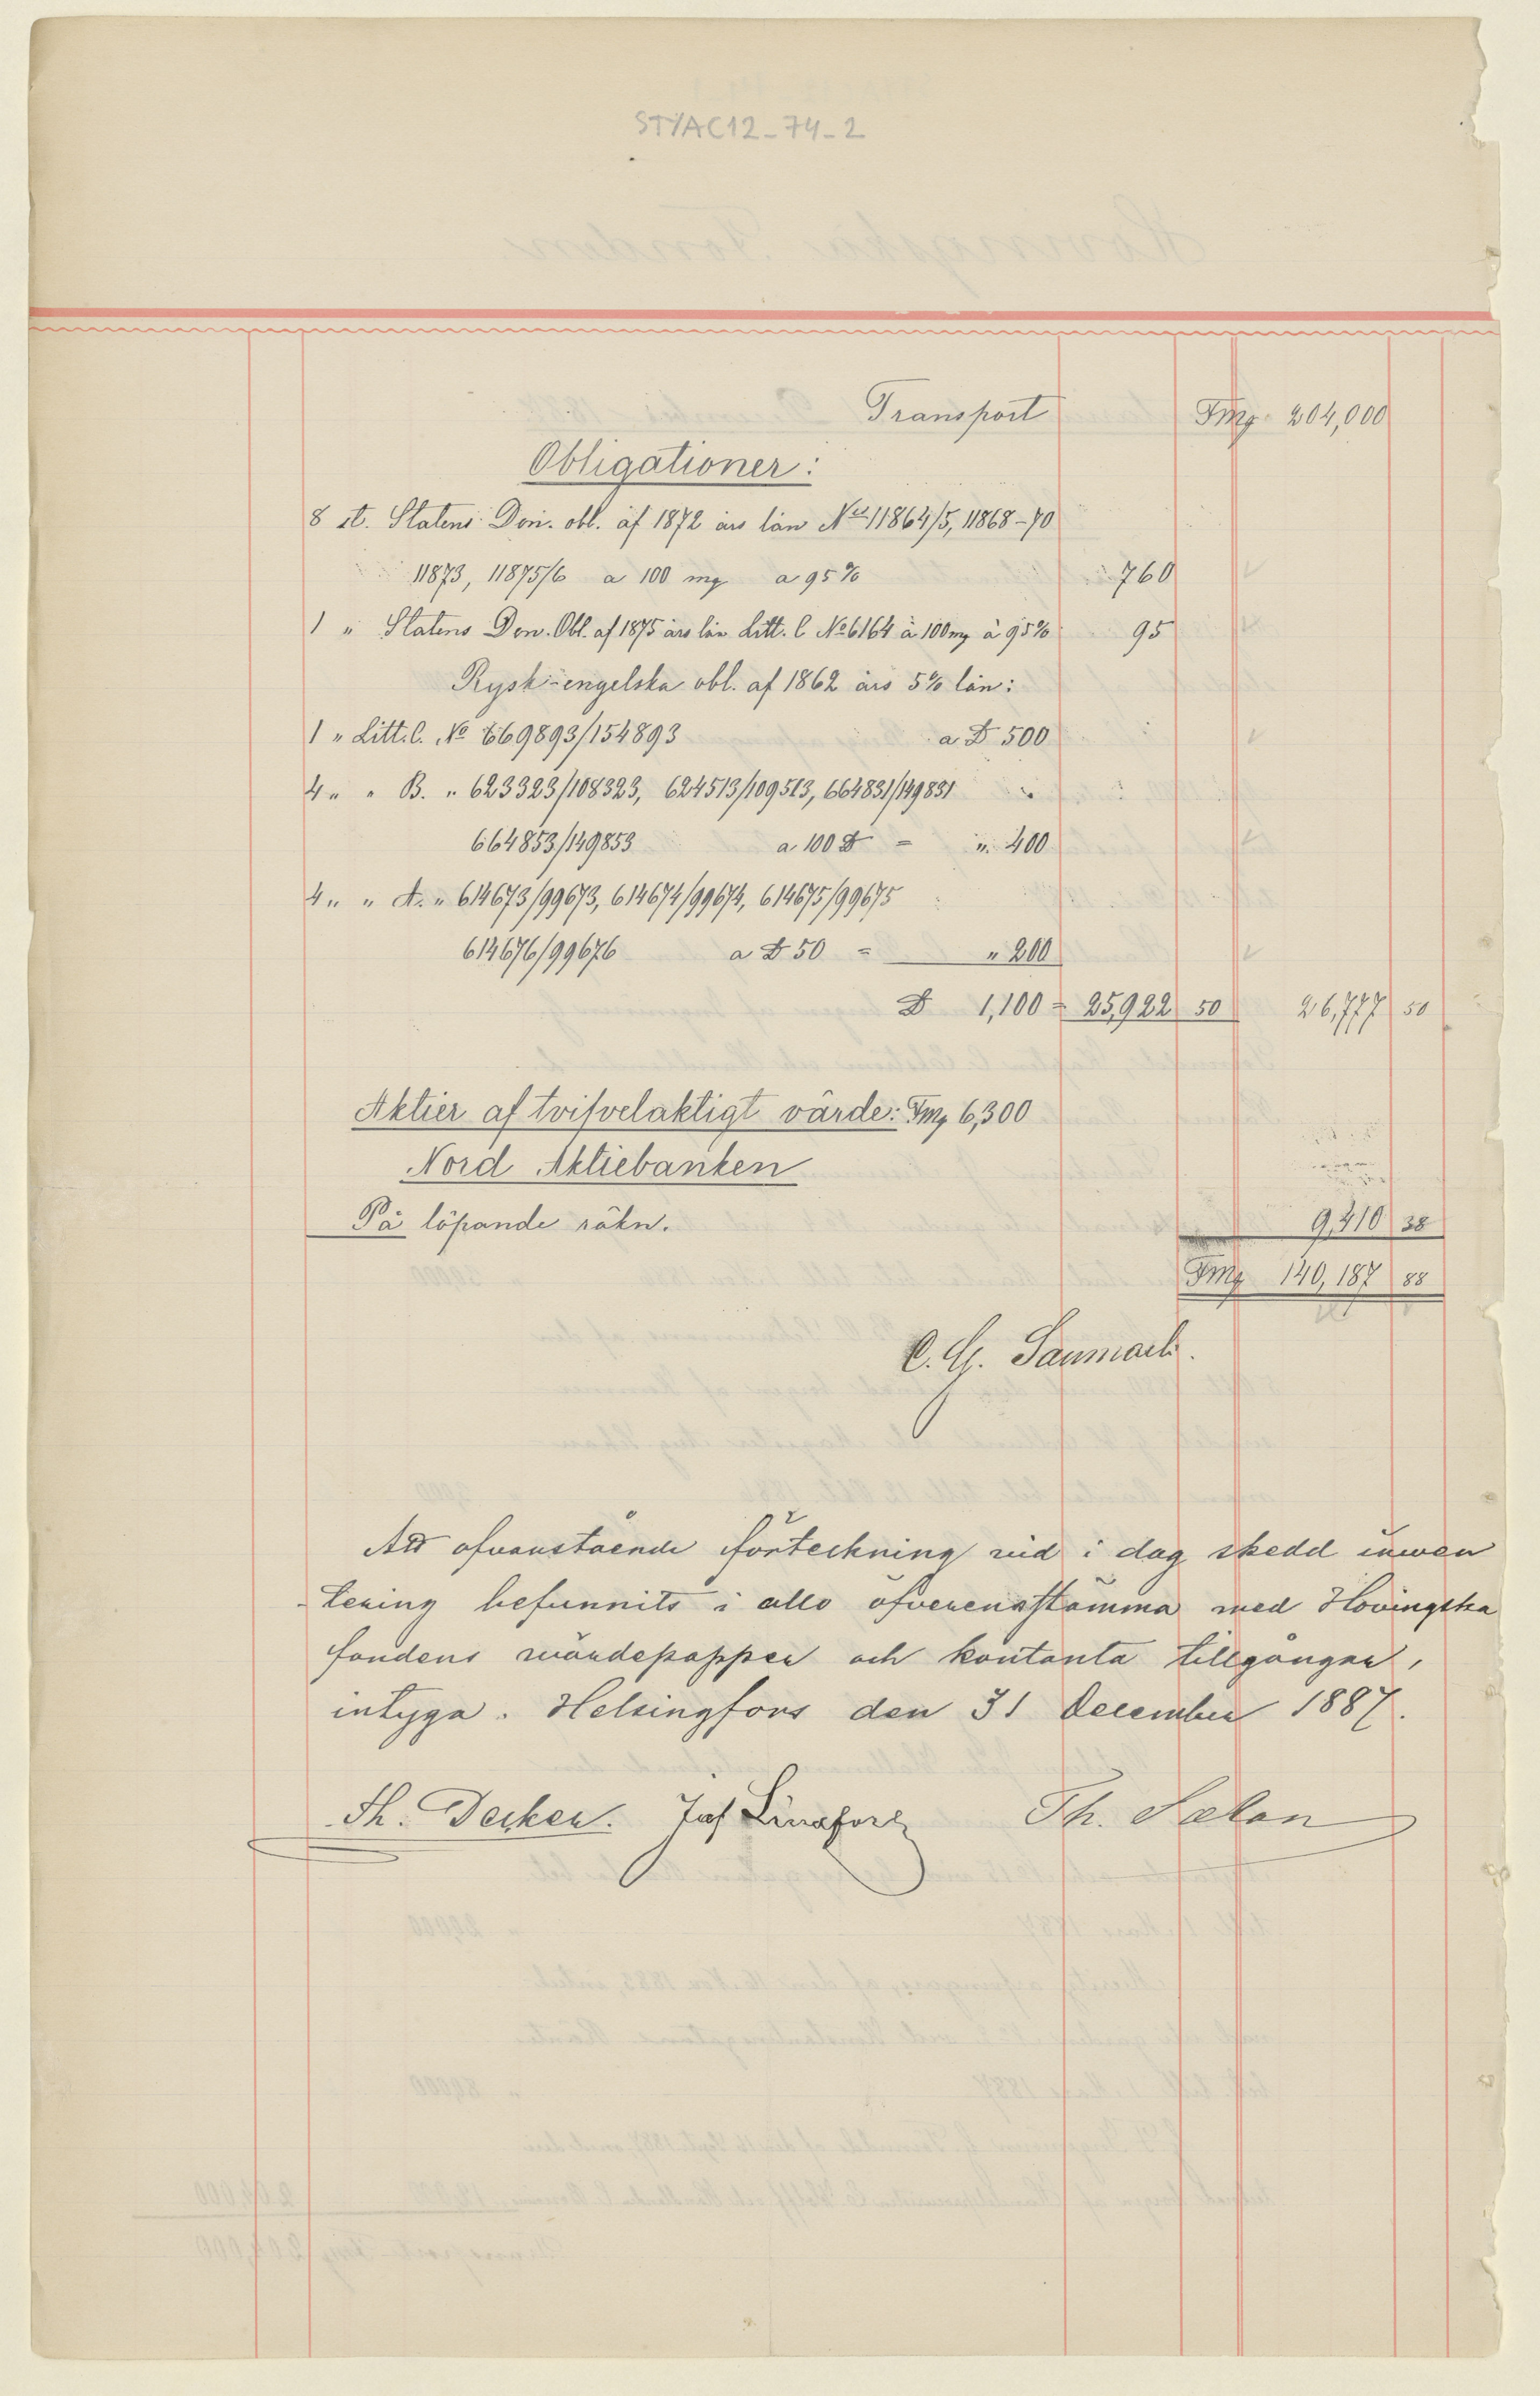 STYAC12_74_2
Transport Fmg 204,000
Obligationer:
8 st. Statens Dom. obl. af 1872 års lån Nis 11864/5, 11868-70
11873, 11875/6 a 100 mg a 95% 760
1 " Statens Dom. Obl. af 1875 års lån Litt. C No 6164 à 100 mg à 95% 95
Rysk-engelska obl. af 1862 års 5% lån:
1 " Litt. C. No 669893/154893 a £ 500
4 " " B. " 623323/108323, 624513/109513, 664831/149831
664853/149853 a 100 £ = " 400
4 " " A. " 614673/99673, 614674/99674, 614675/99675
614676/99676 a £ 50 = " 200
£ 1,100 = 25,922 50 26,777 50
Aktier af tvifvelaktigt värde: Fmg 6,300
Nord Aktiebanken
På löpande räkn. 9,410 38
Fmg 140,187 88
C. G. Sanmark.
Att ofvanstående förteckning vid i dag skedd inven
tering befunnits i allo öfverensstämma med Hovingska
fondens wärdepapper och kontanta tillgångar,
intyga. Helsingfors den 31 December 1887.
Th. Decker. Lindfors Th. Sælan